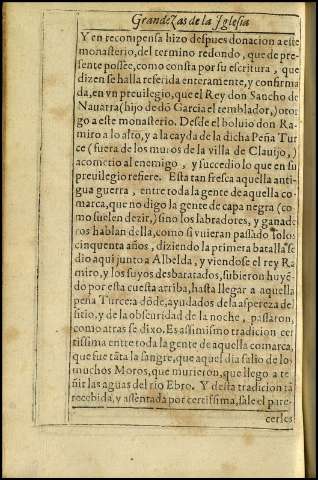 Grandezas de la Iglesia
Y en recompensa hizo despues donacion a este
monasterio, del termino redondo, que de pre-
sente possee, como consta por su escritura, que
dizen se halla referida enteramente, y confirma
da, en vn preuilegio, que el Rey don Sancho de
Nauarra (hijo de dõ Garcia el temblador,) otor
go a este monasterio. Desde el boluio don Ra-
miro a lo alto, y a la cayda de la dicha Peña Tur
ce (fuera de los muros de la villa de Clauijo,)
acometio al enemigo, y succedio lo que en su
preuilegio refiere. Esta tan fresca aquella anti-
gua guerra, entre toda la gente de aquella co-
marca, que no digo la gente de capa negra (co
mo suelen dezir,) sino los labradores, y ganade
ros hablan della, como si vuieran passado solos
cinquenta años, diziendo la primera batalla se
dio aqui junto a Albelda, y viendose el rey Ra
miro, y los suyos desbaratados, subieron huyẽ-
do por esta cuesta arriba, hasta llegar a aquella
peña Turce: a dõde, ayudados de la aspereza del
sitio, y de la obscuridad de la noche, passaron,
como atras se dixo. Es assimismo tradicion cer
tissima entre toda la gente de aquella comarca,
que fue tãta la sangre, que aquel dia salio de los
muchos Moros, que murieron, que llego a te-
ñir las aguas del rio Ebro. Y desta tradicion tã
recebida, y assentada por certissima, sale el pare-
cerles